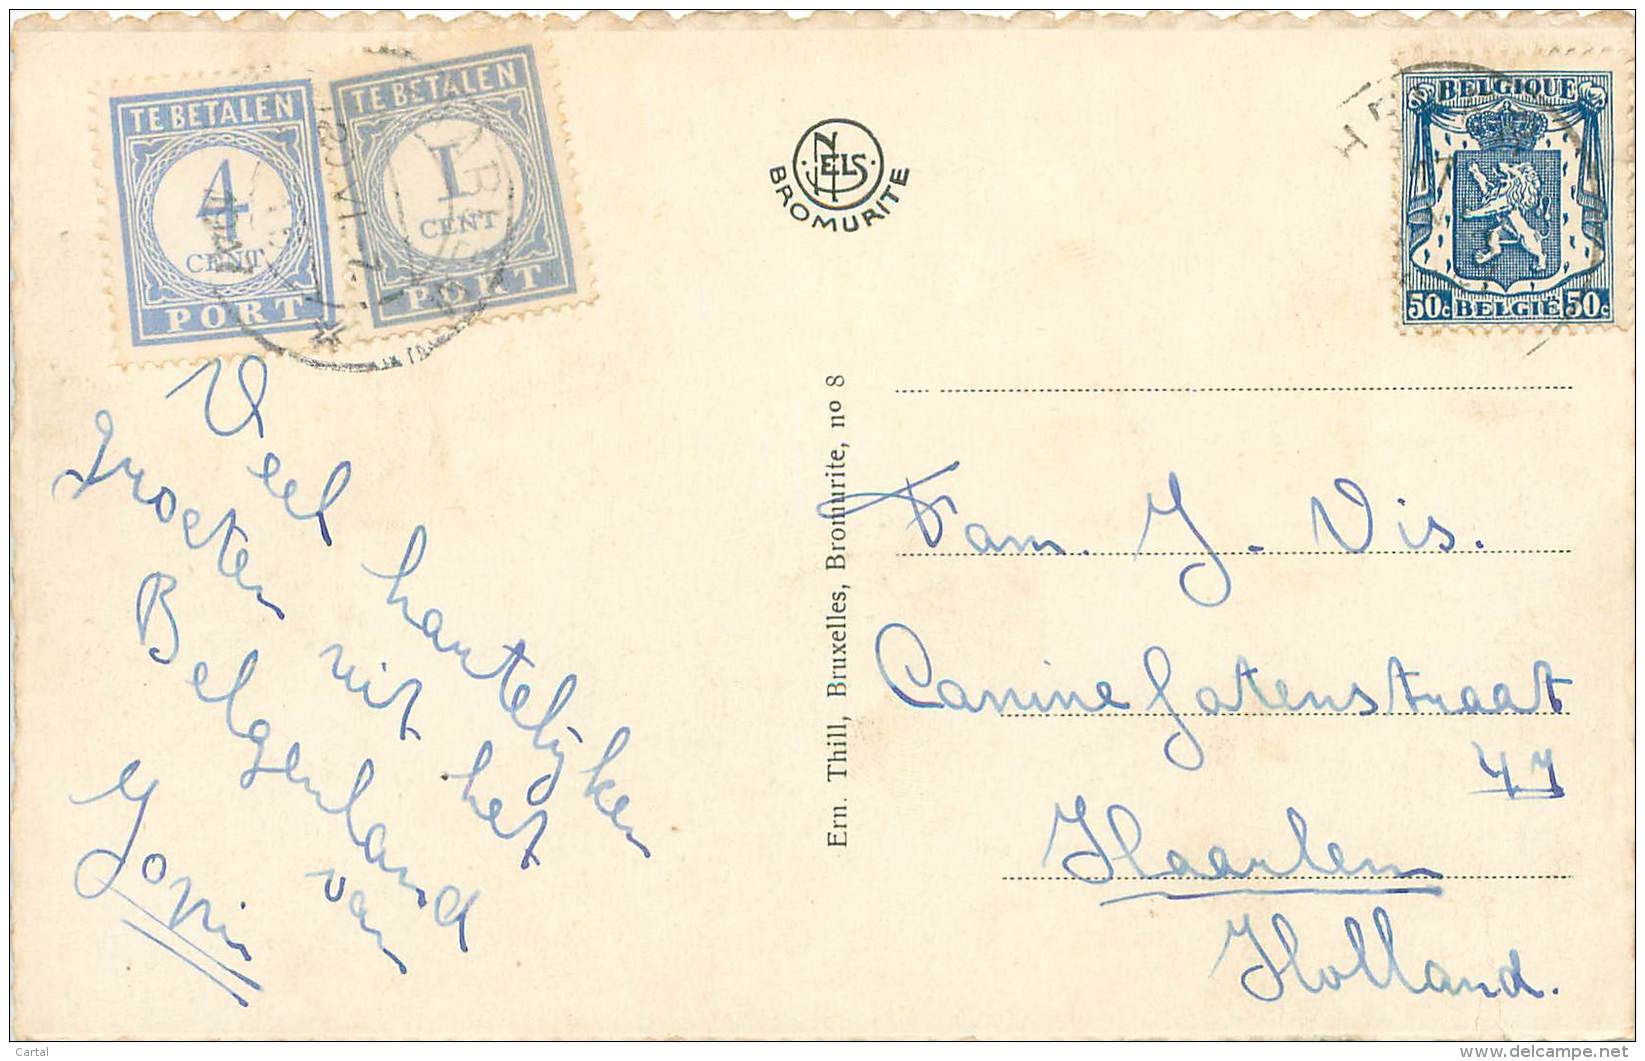 TE BETALEN
4
CENT
PORT
TE BETALEN
1
CENT
PORT
NELS
BROMURITE
BELGIQUE
50c BELGIË 50c
Veel hartelijken
groeten uit het
Belgenland
van
Ern. Thill, Bruxelles, Bromurite, no 8
Fam. J. Vis.
straat
47
Haarlem
Holland.
Cartal
delcampe.net